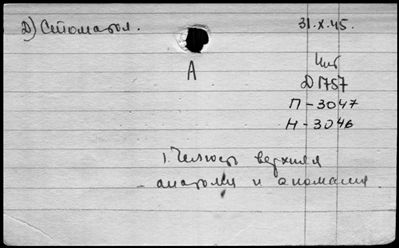 Д) Стоматол.
31.X.45.
А
Д 1757
П-3047
Н-3046
1. Челюсть верхняя
анатомия и аномалия.